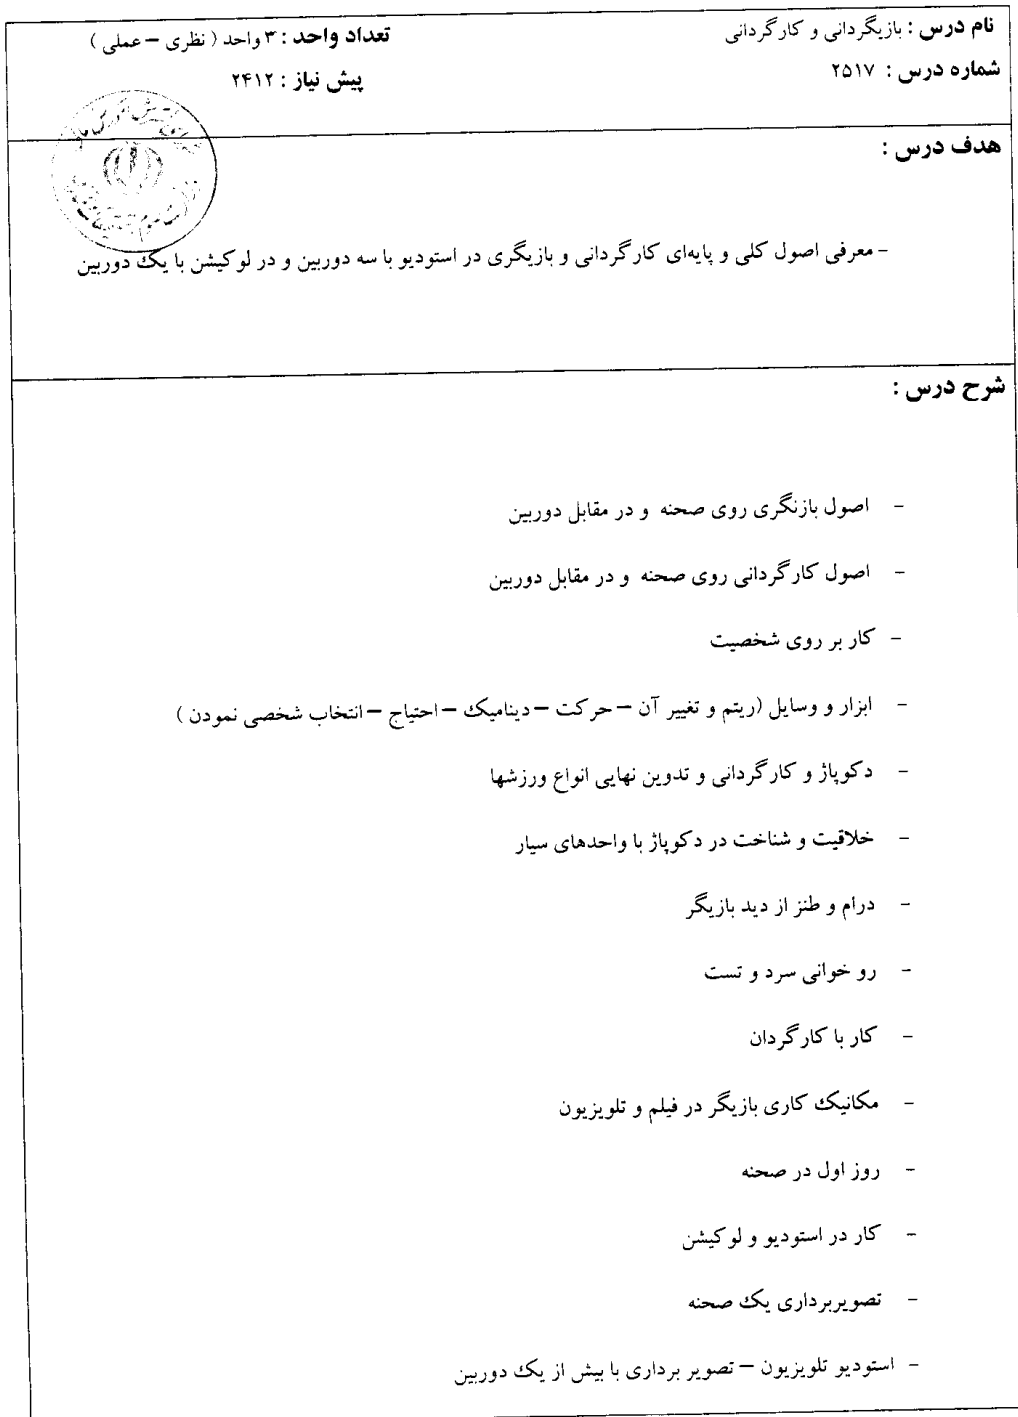 نام درس : بازیگردانی و کارگردانی
تعداد واحد : ۳ واحد ( نظری – عملی )
شماره درس : ۲۵۱۷
پیش نیاز : ۲۴۱۲
هدف درس :
- معرفی اصول کلی و پایه‌ای کارگردانی و بازیگری در استودیو با سه دوربین و در لوکیشن با یک دوربین
شرح درس :
- اصول بازنگری روی صحنه و در مقابل دوربین
- اصول کارگردانی روی صحنه و در مقابل دوربین
- کار بر روی شخصیت
- ابزار و وسایل (ریتم و تغییر آن – حرکت – دینامیک – احتیاج – انتخاب شخصی نمودن )
- دکوپاژ و کارگردانی و تدوین نهایی انواع ورزشها
- خلاقیت و شناخت در دکوپاژ با واحدهای سیار
- درام و طنز از دید بازیگر
- رو خوانی سرد و تست
- کار با کارگردان
- مکانیک کاری بازیگر در فیلم و تلویزیون
- روز اول در صحنه
- کار در استودیو و لوکیشن
- تصویربرداری یک صحنه
- استودیو تلویزیون – تصویر برداری با بیش از یک دوربین